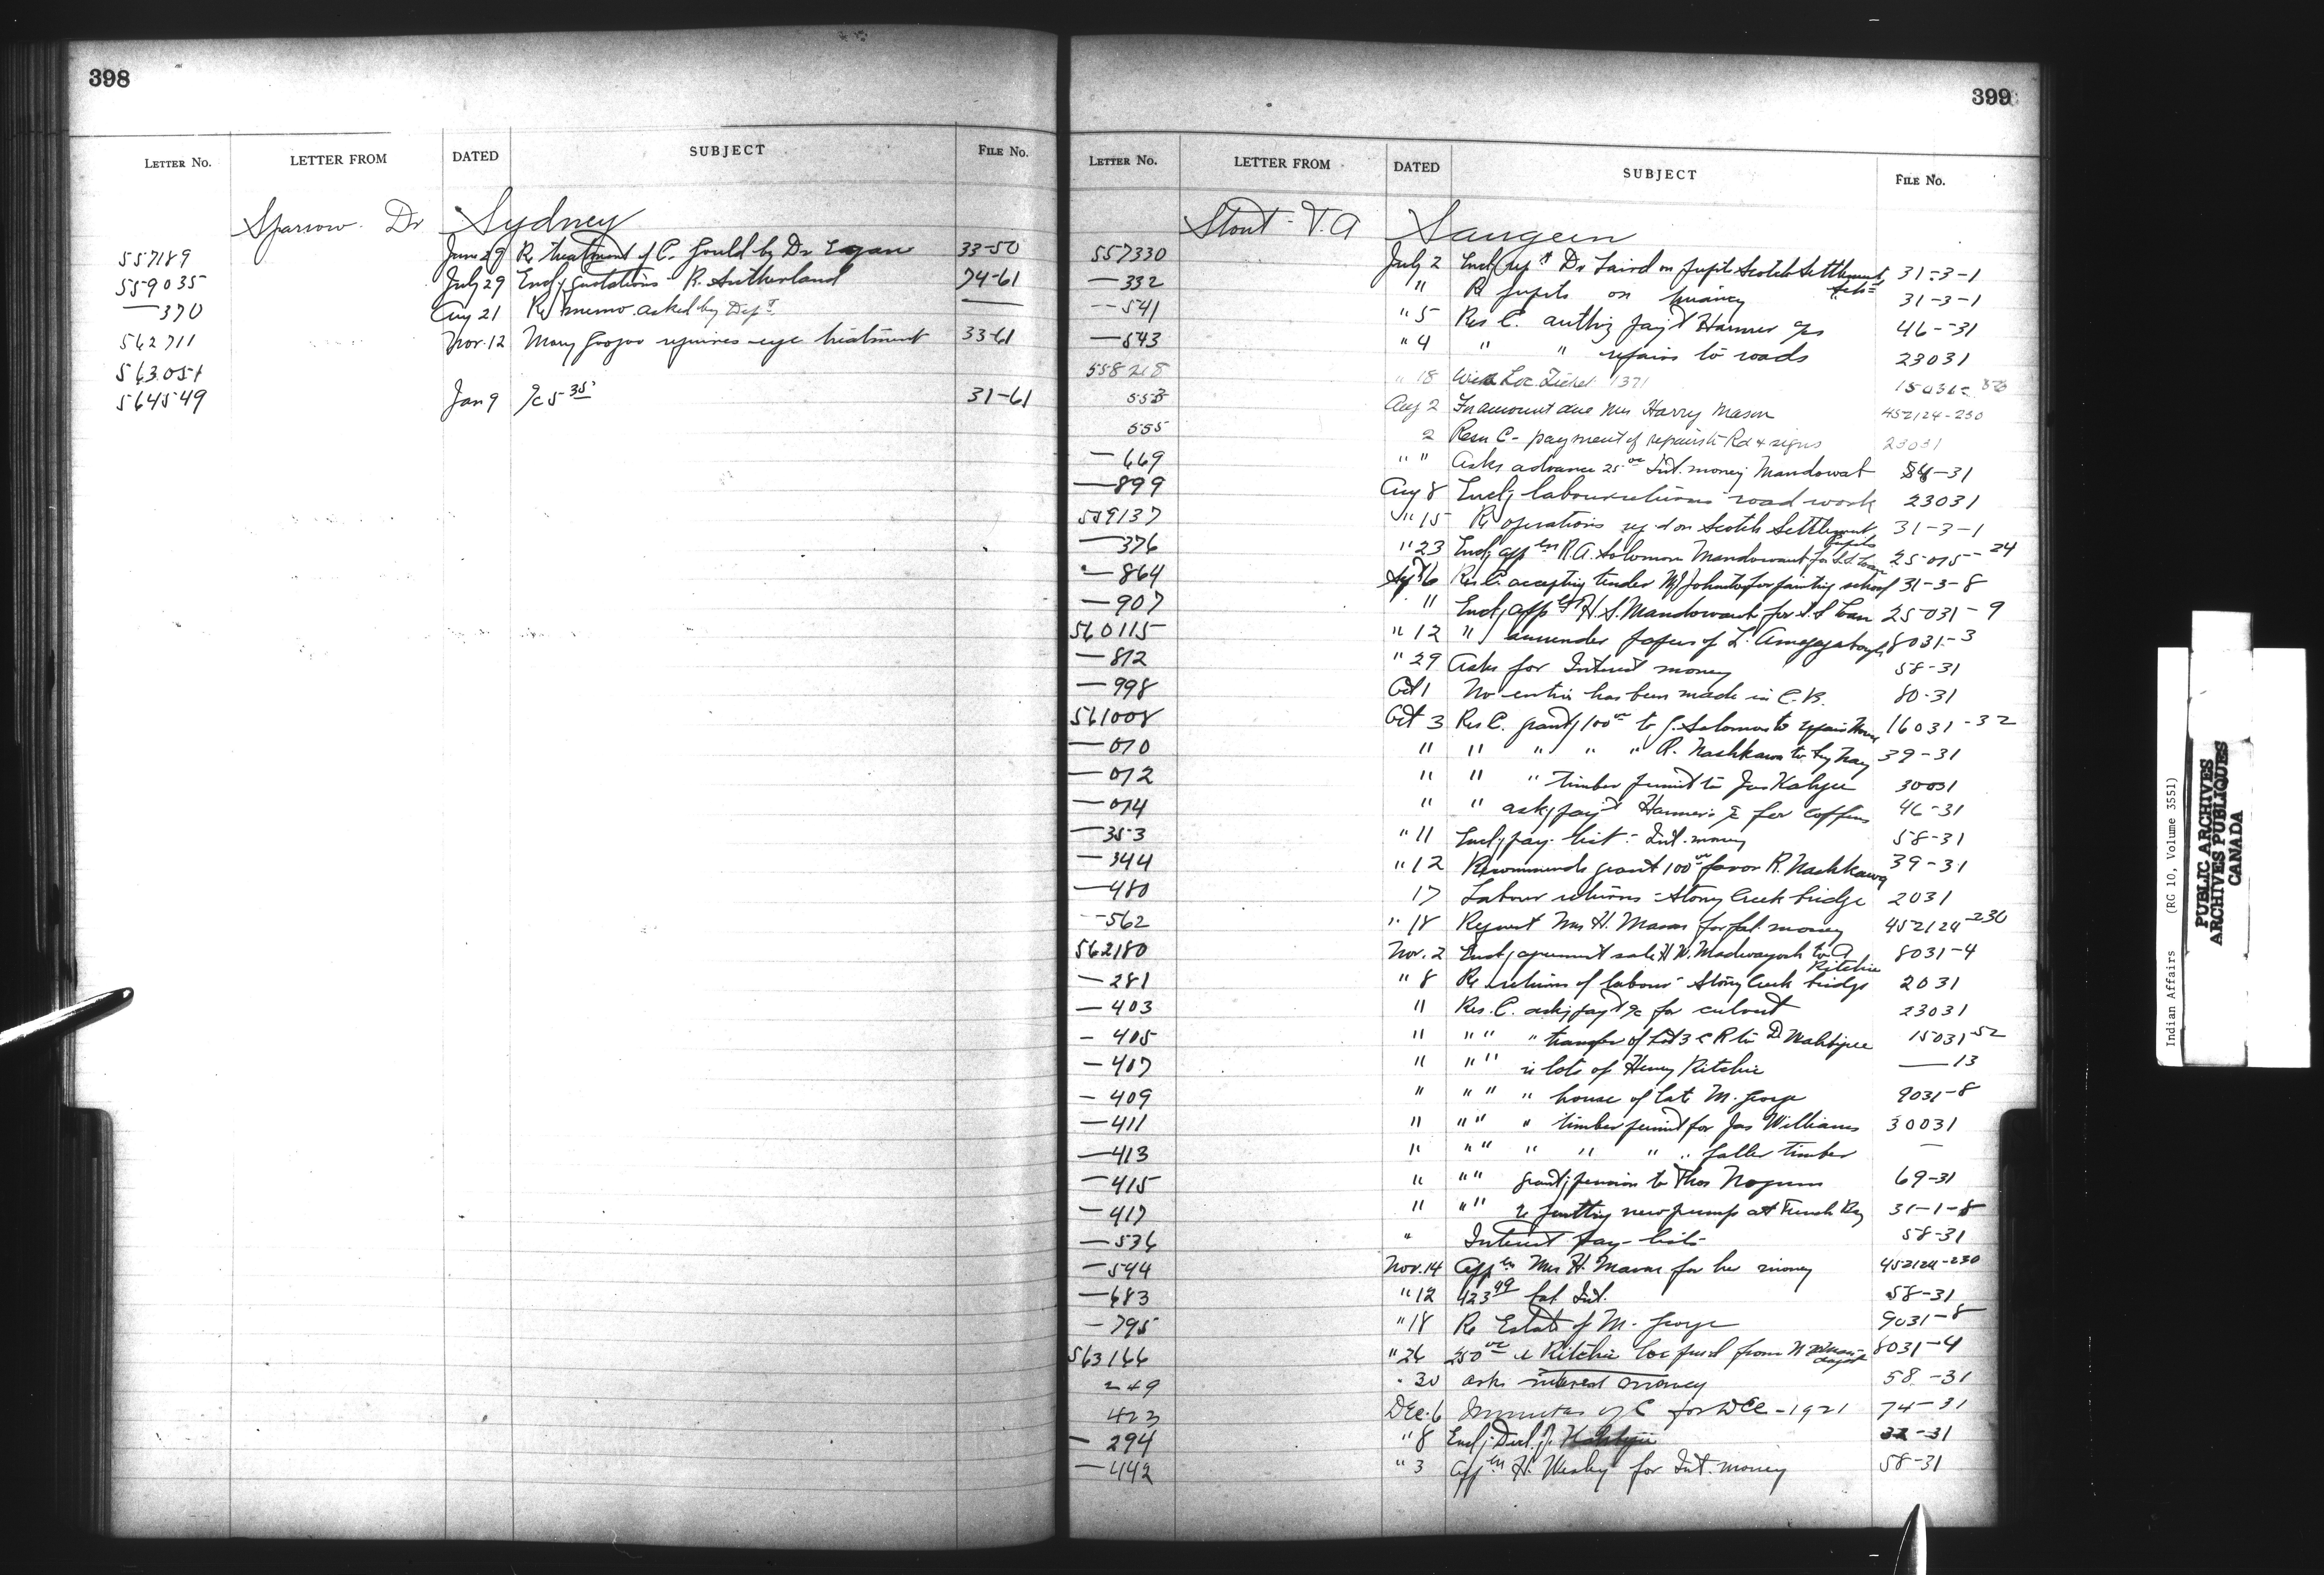 398
LETTER NO. LETTER FROM DATED SUBJECT FILE No.
Sparrow Dr Sydney
557189 June 29 Re treatment of C. Gould by Dr Egan 33-50
559035 July 29 Encl; quotations - R. Sutherland 74-61
—370 Aug 21 Re memo. asked by Dept —
562711 Nov. 12 Mary requires eye treatment 33-61
563051
564549 Jan 9 a/c 5 35 31-61
399
LETTER No. LETTER FROM DATED SUBJECT FILE No.
Stout - T. A Saugeen
557330 July 2 Encl; rept Dr Laird on pupils Scotch Settlement Sch= 31-3-1
—332 " Re pupils on truancy 31-3-1
—541 " 5 Res C. authg payt Harmer a/cs 46-31
—543 " 4 " " repairs to roads 23031
558218 " 18 Loc. Ticket 1371
553 Aug 2 Fn amount due Mrs Harry Mason 452124-230
555 2 Resn C - payment of repairs to Rd & signs 23031
—669 " " Asks advance 25 00 Int. money Mandowat 54-31
—899 Aug 8 Encl; labour returns road work 23031
559137 " 15 Re operations reqd on Scotch Settlement pupils 31-3-1
—376 " 23 Encl; appln R. A. Solomon Mandowaub for S.S. Loan 25015-24
—864 Sept 6 Res C. accepting tender W J Johnston for painting school 31-3-8
—907 " Encl; appln H. S. Mandowaub for S.S Loan 25031-9
560115 " 12 " surrender papers of L. 8031-3
—812 " 29 Asks for Interest money 58-31
—998 Oct 1 No entry has been made in C.B. 80-31
561008 Oct 3 Res C. grantg 100 00 to J. Solomon to repair house 16031-32
—010 " " " " " R. Nashkawa to buy hay 39-31
—012 " " " timber permit to Jas Kahgee 30031
—014 " " askg payt Harmer's a/c for coffins 46-31
—353 " 11 Encl; pay-list - Int. money 58-31
—344 " 12 Recommends grant 100 00 favor R. Nashkawa 39-31
—480 17 Labour returns - Stony Creek bridge 2031
—562 " 18 Request Mrs H. Mason for bal. money 452124-230
562180 Nov. 2 Encl; agreement sale H W. Madwayosh to A Ritchie 8031-4
—281 " 8 Re returns of labour - Stony Creek bridge 2031
—403 " Res. C. askg payt a/c for culvert 23031
—405 " " " " transfer of Lot 3 C R to D 15031-52
—407 " " " re lots of Henry Ritchie —13
—409 " " " " house of late M. George 9031-8
—411 " " " " timber permit for Jas Williams 30031
—413 " " " " " " " fallen timber —
—415 " " " grantg pension to Thos 69-31
—417 " " " re putting new pump at French Bay 31-1-8
—536 " Interest pay-lists 58-31
—594 Nov. 14 Appln Mrs H. Mason for her money 452124-230
—683 " 12 423 99 bal Int. 58-31
—795 " 18 Re Estate of M. George 9031-8
563166 " 26 250 00 re Ritchie loc purd from W 8031-4
249 " 30 asks interest money 58-31
423 Dec. 6 Minutes of C for Dec - 1921 74-31
—294 " 8 Encl; Decl. J. 32-31
—442 " 3 Appln H. Wesley for Int. money 58-31
Indian Affairs (RG 10, Volume 3551)
PUBLIC ARCHIVES
ARCHIVES PUBLIQUES
CANADA